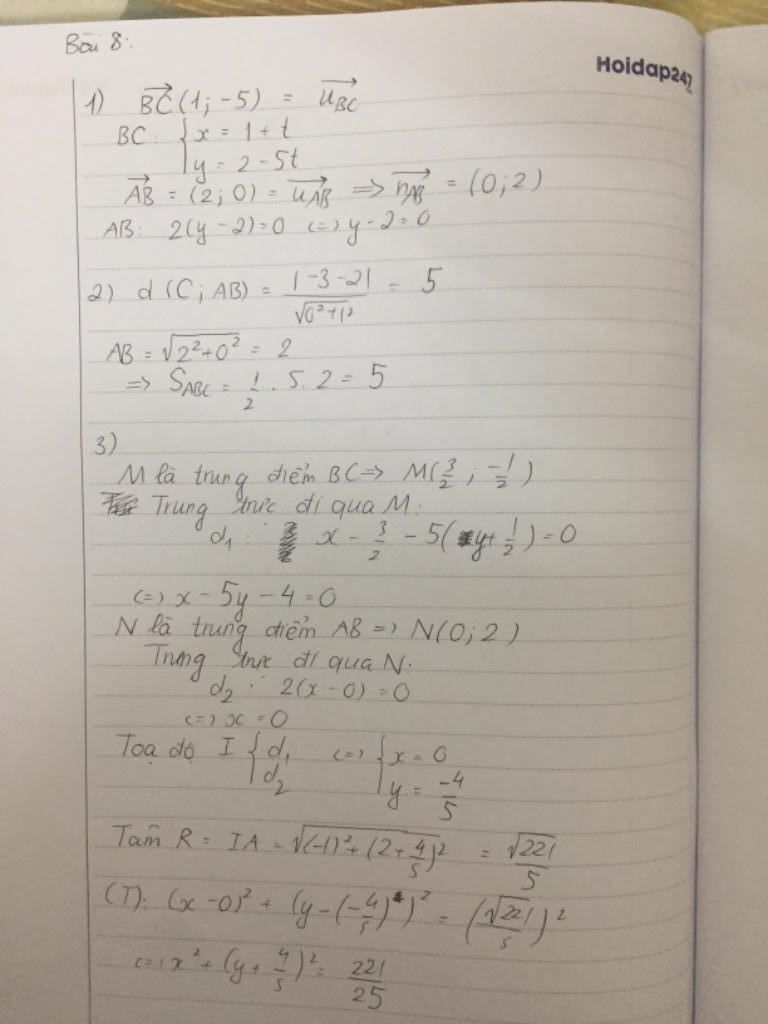 Bài 8:
Hoidap247
1) $\overrightarrow{BC}(1;-5) = \overrightarrow{u_{BC}}$
BC: $\begin{cases} x = 1+t \\ y = 2-5t \end{cases}$
$\overrightarrow{AB} = (2;0) = \overrightarrow{u_{AB}} \Rightarrow \overrightarrow{n_{AB}} = (0;2)$
AB: 2(y-2)=0 (=) y-2=0
2) d(C;AB) = $\frac{|-3-2|}{\sqrt{0^2+1^2}}$ = 5
AB = $\sqrt{2^2+0^2}$ = 2
=> $S_{ABC}$ = $\frac{1}{2}$ . 5. 2 = 5
3)
M là trung điểm BC => M($\frac{3}{2}$; $\frac{-1}{2}$)
Trung trực đi qua M:
$d_1$: x - $\frac{3}{2}$ - 5(y + $\frac{1}{2}$) = 0
(=) x - 5y - 4 = 0
N là trung điểm AB => N(0;2)
Trung trực đi qua N:
$d_2$: 2(x-0) = 0
(=) x = 0
Toạ độ I $\begin{cases} d_1 \\ d_2 \end{cases}$ (=) $\begin{cases} x = 0 \\ y = \frac{-4}{5} \end{cases}$
Tâm R = IA = $\sqrt{(-1)^2 + (2+\frac{4}{5})^2}$ = $\frac{\sqrt{221}}{5}$
(T): $(x-0)^2 + (y-(-\frac{4}{5}))^2 = (\frac{\sqrt{221}}{5})^2$
(=) $x^2 + (y+\frac{4}{5})^2 = \frac{221}{25}$